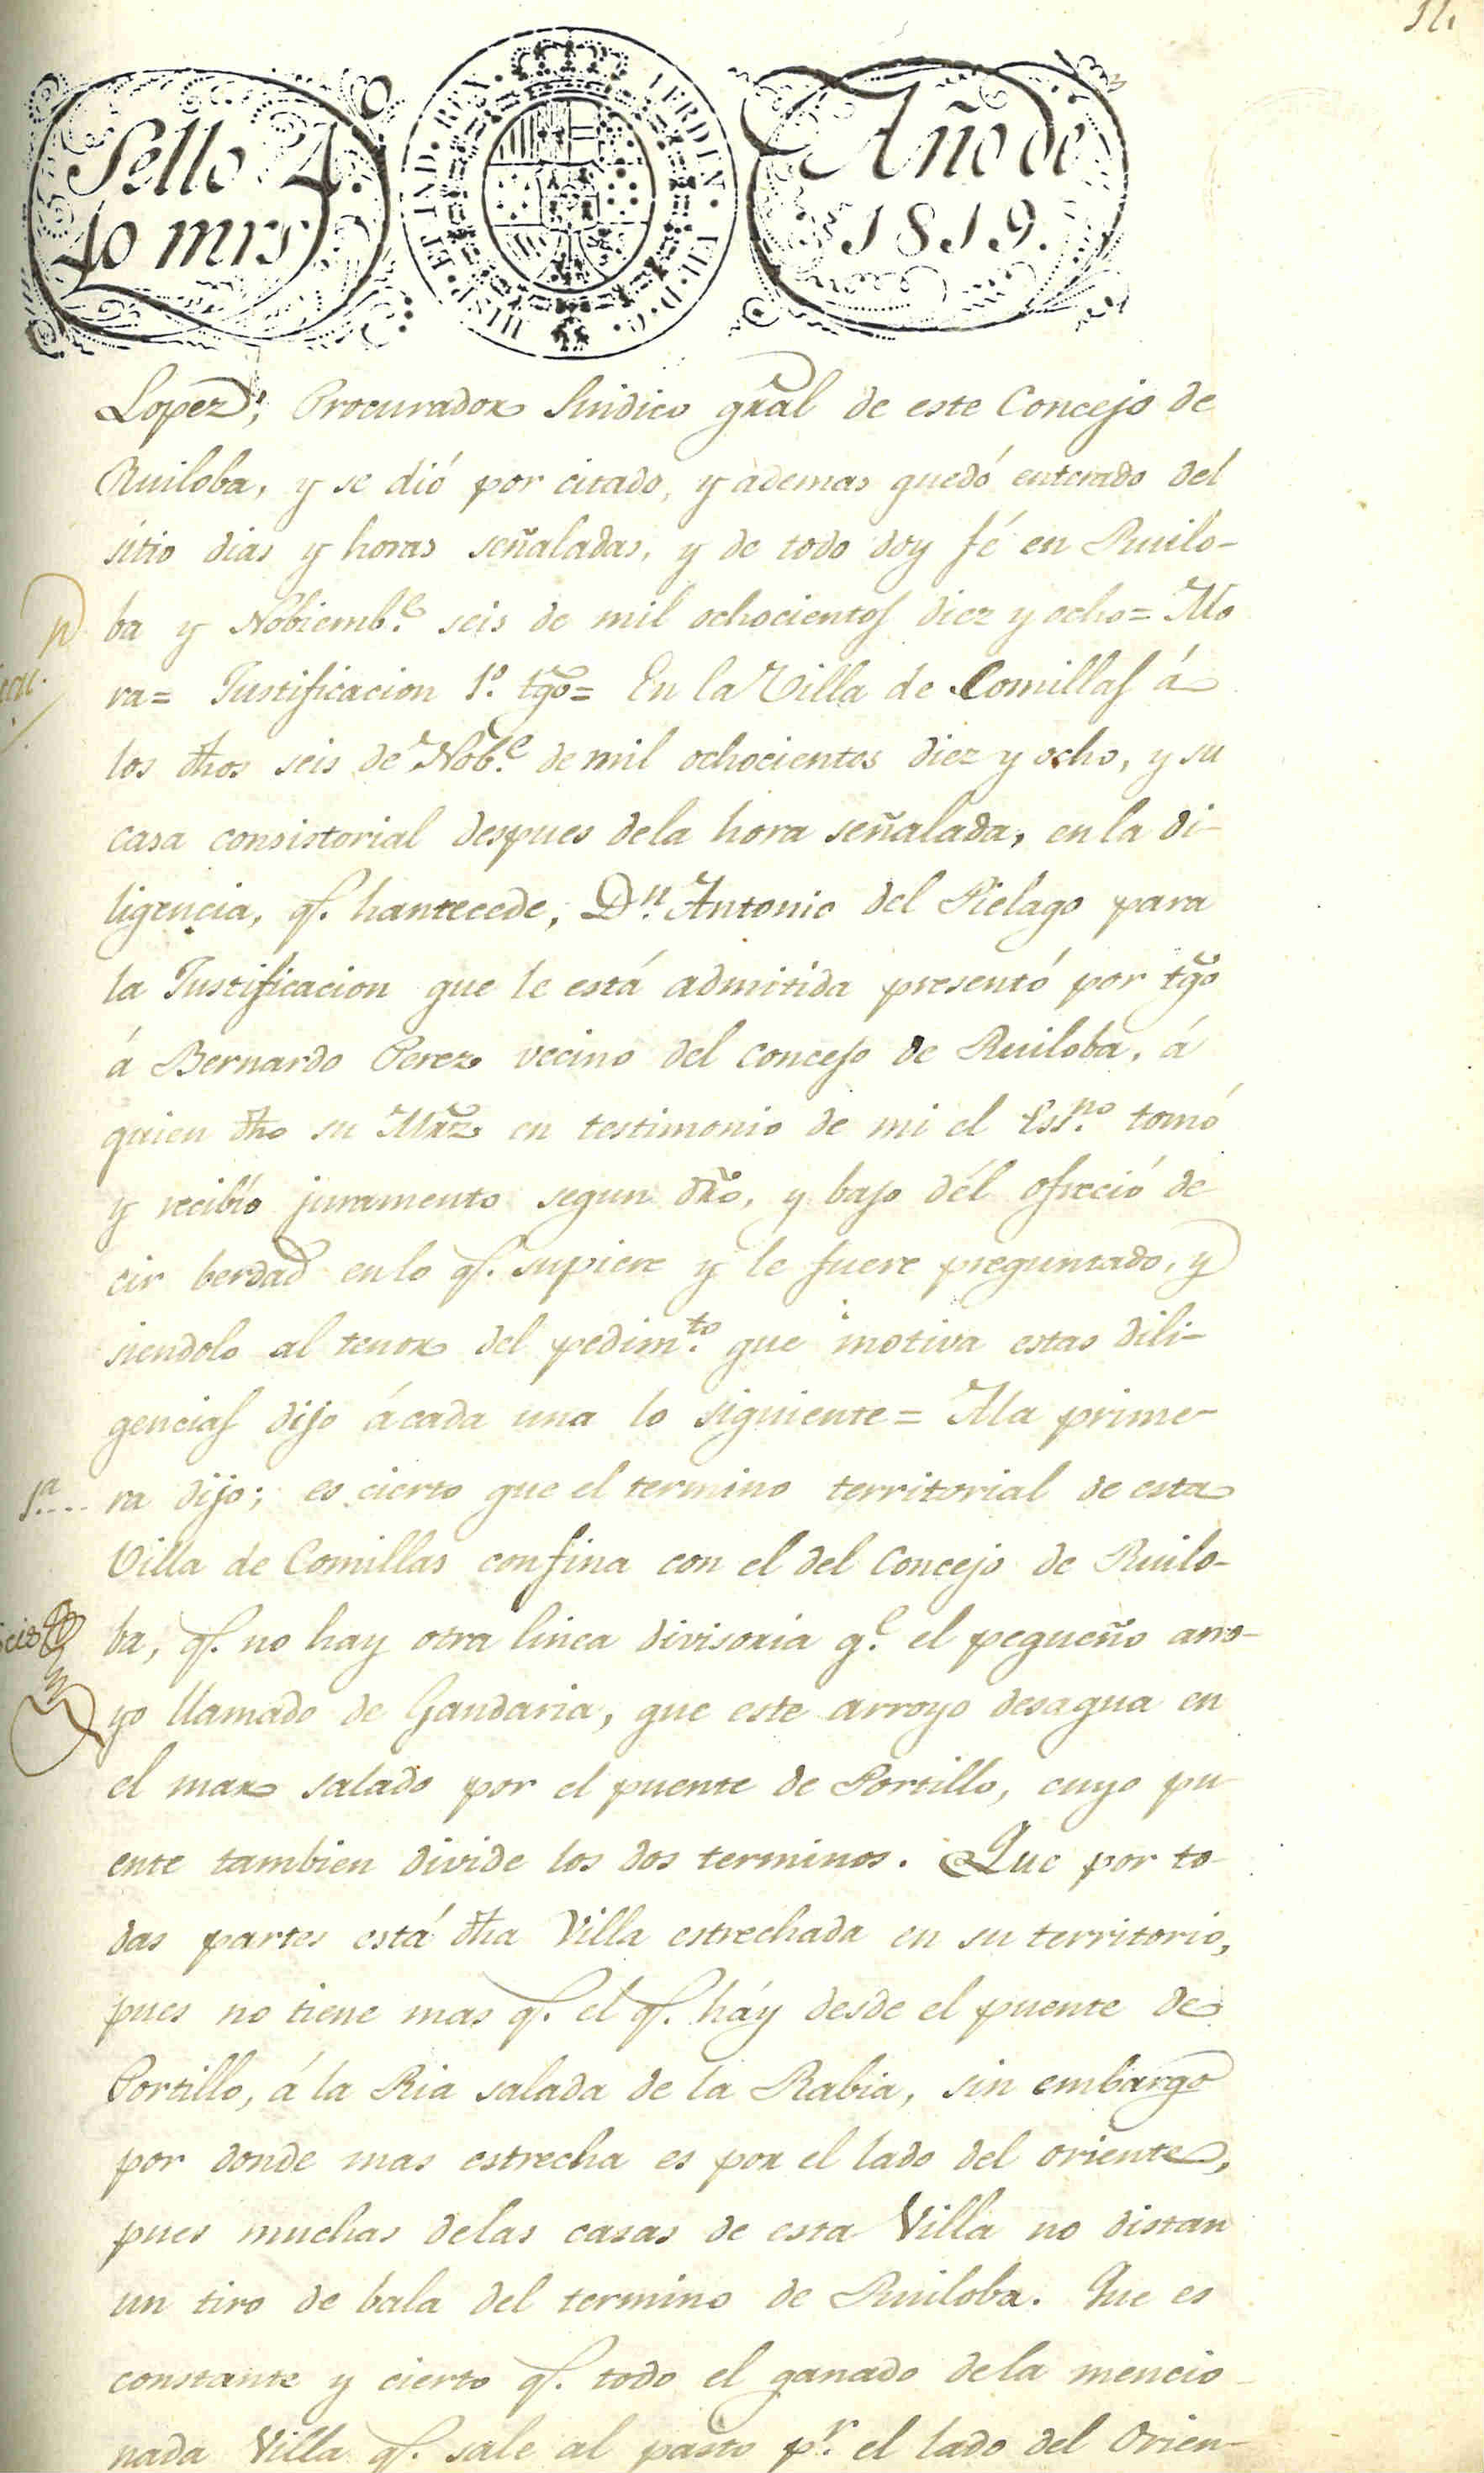 Sello 4.
40 mrs
HISP. ET IND. REX. FERDIN. VII. D. G.
Año de
1819.
Lopez; Procurador Sindico gral de este Concejo de
Ruiloba, y se dió por citado, y ademas quedó enterado del
sitio dias y horas señaladas, y de todo doy fé en Ruilo-
ba y Nobiemb.e seis de mil ochocientos diez y ocho= Mo
ra= Justificacion 1.º tgo= En la Villa de Comillas á
los dhos seis de Nob.e de mil ochocientos diez y ocho, y su
casa consistorial despues dela hora señalada, en la di-
ligencia, q.e hantecede, D.n Antonio del Pielago para
la Justificacion que le está admitida presentó por tgo
á Bernardo Perez vecino del concejo de Ruiloba, á
quien dho su Mrz en testimonio de mi el Ess.no tomó
y recibío juramento segun dro, y bajo dél ofreció de
cir berdad en lo q.e supiere y le fuere preguntado, y
siendolo al tenor del pedim.to que motiva estas dili-
gencias dijo ácada una lo siguiente= Ala prime-
1.a.... ra dijo; es cierto que el termino territorial de esta
Villa de Comillas confina con el del Concejo de Ruilo-
ba, q.e no hay otra linea divisoria q.e el pequeño arro-
yo llamado de Gandaria, que este arroyo desagua en
el mar salado por el puente de Portillo, cuyo pu
ente tambien divide los dos terminos. Que por to-
das partes está dha Villa estrechada en su territorio,
pues no tiene mas q.e el q.e háy desde el puente de
Portillo, á la Ria salada de la Rabia, sin embargo
por donde mas estrecha es por el lado del oriente,
pues muchas delas casas de esta Villa no distan
un tiro de bala del termino de Ruiloba. Que es
constante y cierto q.e todo el ganado dela mencio-
nada Villa q.e sale al pasto p.r el lado del Orien-